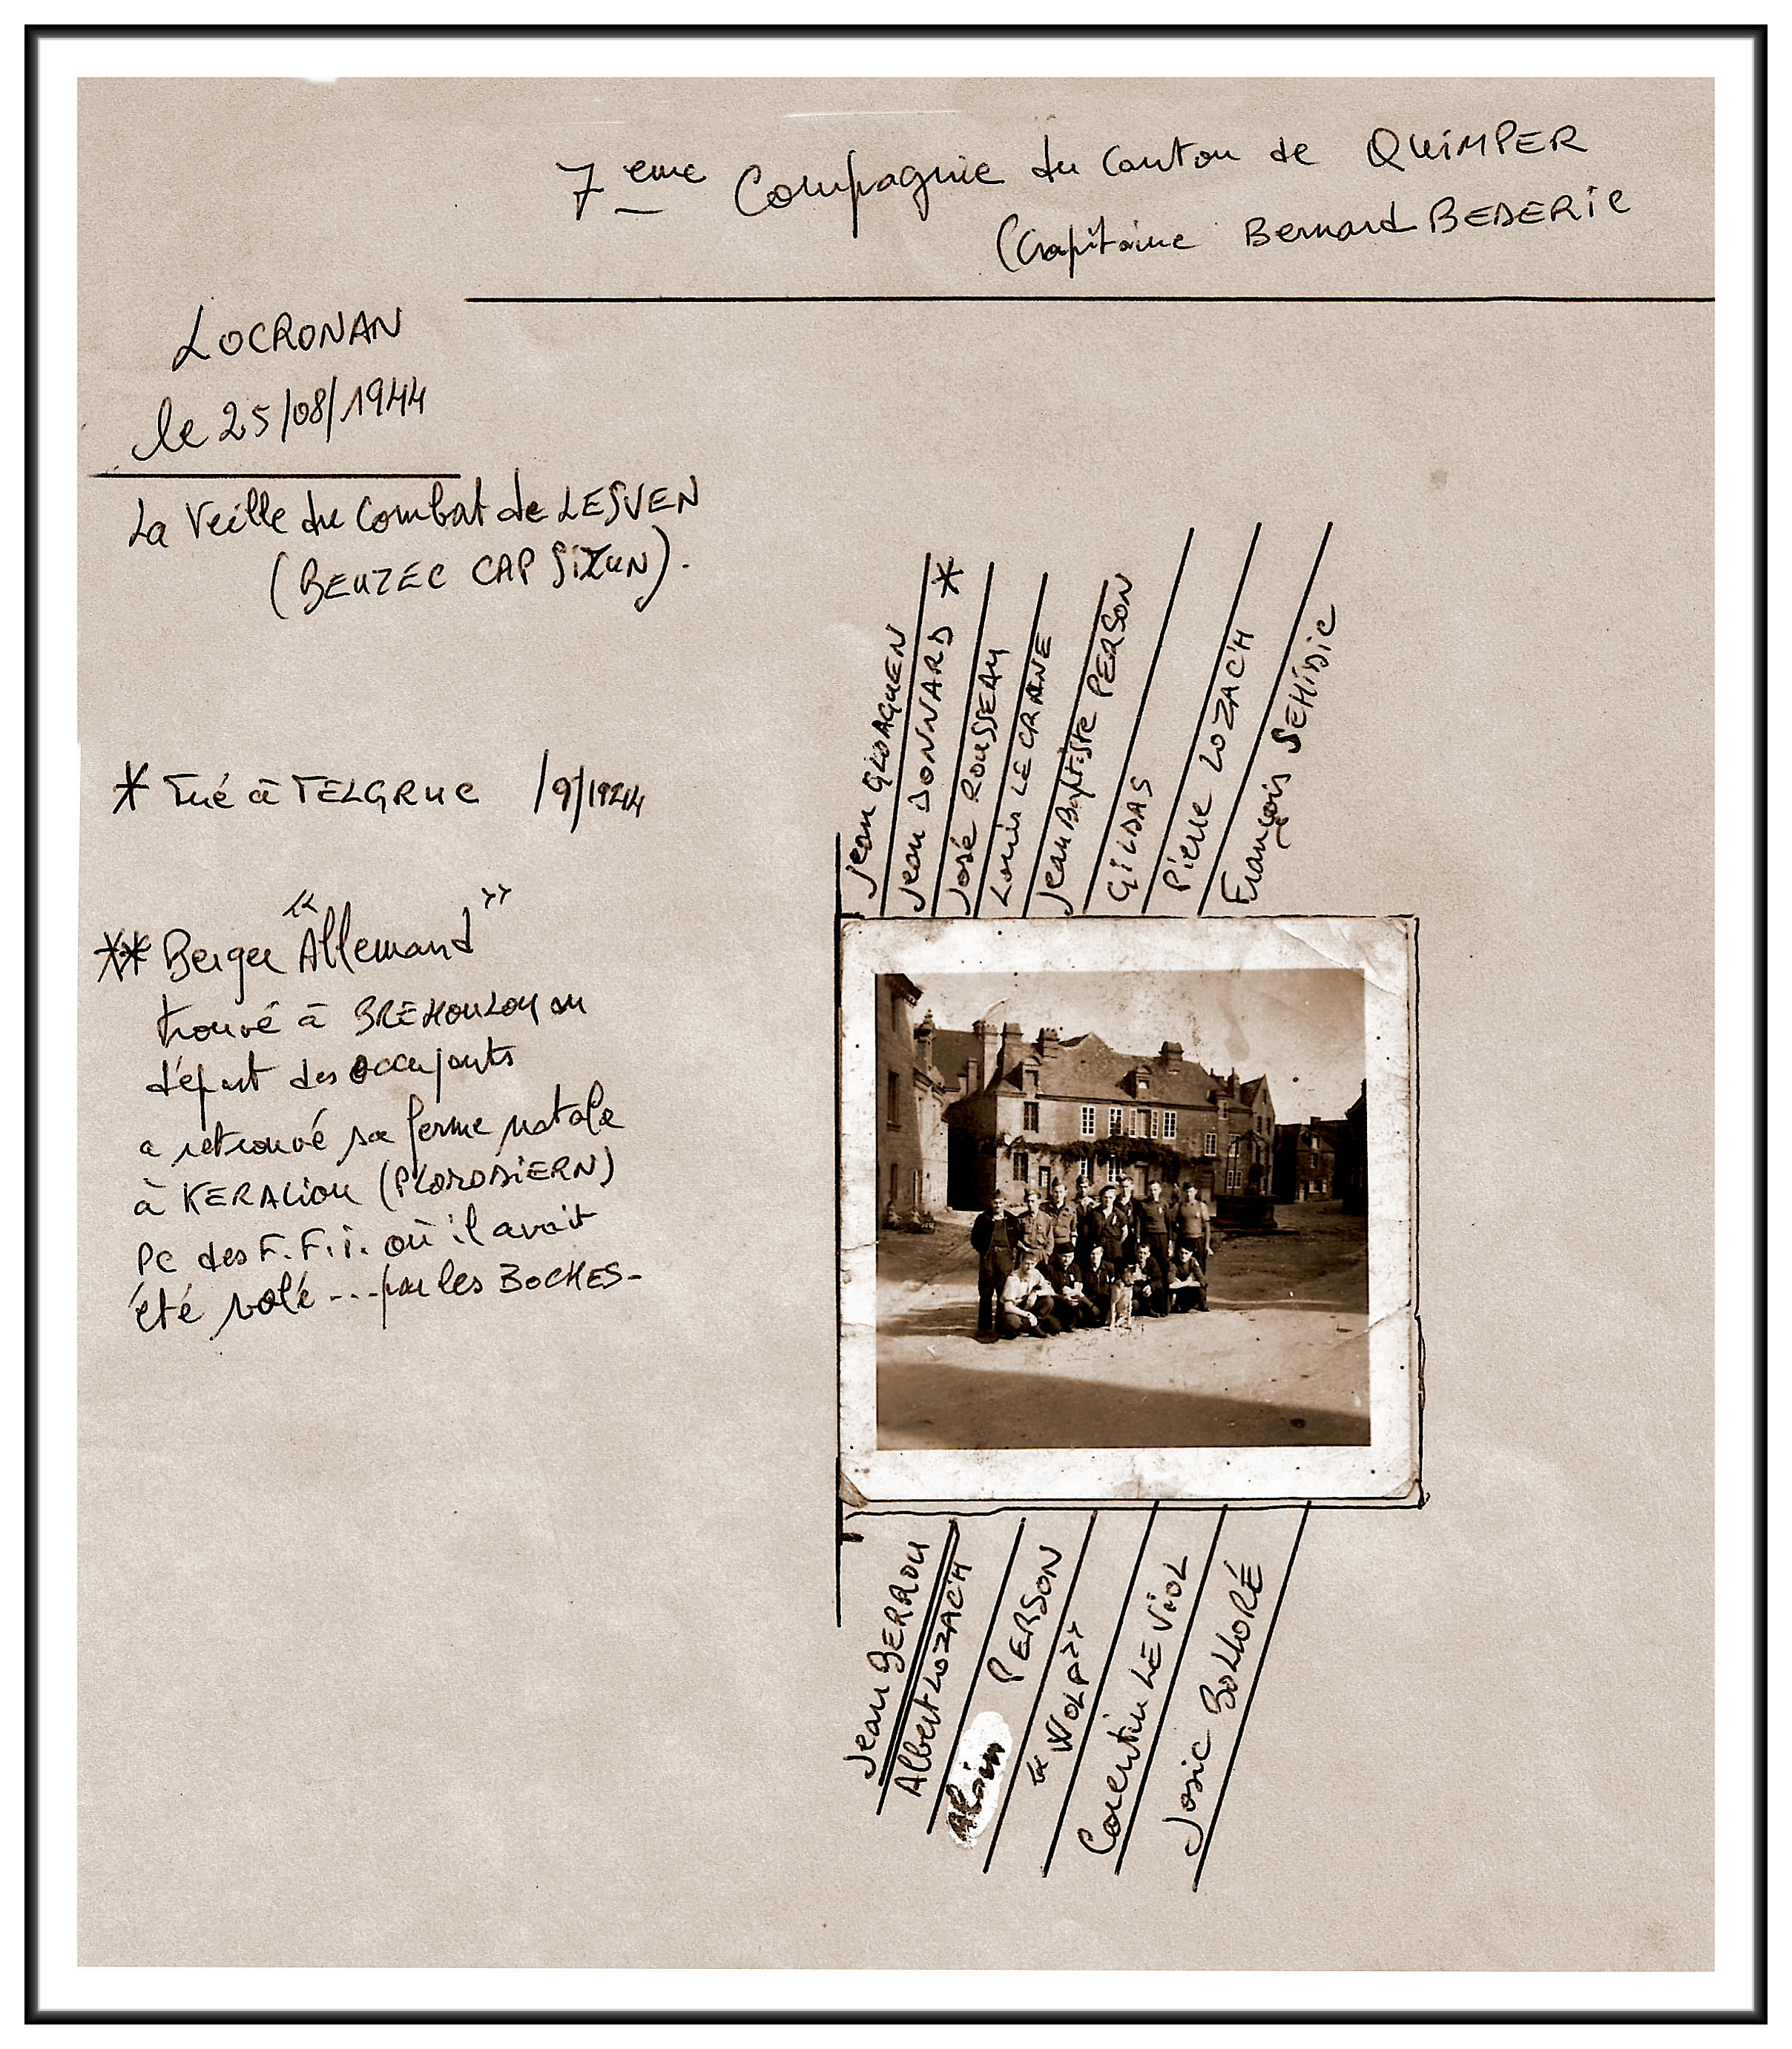 7eme Compagnie du Canton de QUIMPER
(Capitaine Bernard BEDERIC
LOCRONAN
le 25/08/1944
La Veille du Combat de LESVEN
(BEUZEC CAP SIZUN).
* Tué à TELGRUC /9/1944
** Berger "Allemand"
trouvé à BREHOULOU au
départ des occupants
a retrouvé sa ferme natale
à KERALIOU (PLOMODIERN)
PC des F.F.I. où il avait
été volé --- par les BOCHES-
Jean GLOAGUEN
Jean DONNARD *
José ROUSSEAU
Louis LE CRANE
Jean Baptiste PERSON
GILDAS
Pierre LOZAC'H
François SEHEDIC
Jean BERROU
Albert LOZAC'H
Alain PERSON
"WOLF"
Corentin LE VIOL
Josic BOLLORÉ